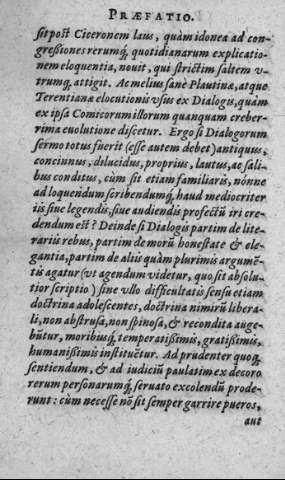 PRÆFATIO.
sit post Ciceronem laus, quàm idonea ad con-
greßiones rerumq́, quotidianarum explicatio-
nem eloquentia, nouit, qui strictim saltem v-
trumq́, attigit. Ac melius sanè Plautinæ, atque
Terentianæ elocutionis vsus ex Dialogis, quàm
ex ipsa Comicorum illorum quanquam creber-
rima euolutione discetur. Ergo si Dialogorum
sermo totus fuerit (esse autem debet) antiquus,
concinnus, dilucidus, proprius, lautus, ac sali-
bus conditus, cùm sit etiam familiaris, nónne
ad loquendum scribendumq́, haud mediocriter
iis siue legendis, siue audiendis profectũ iri cre-
dendum est? Deinde si Dialogis partim de lite-
rariis rebus, partim de morũ honestate & ele-
gantia, partim de aliis quàm plurimis argumẽ-
tis agatur (vt agendum videtur, quo sit absolu-
tior scriptio) sine vllo difficultatis sensu etiam
doctrina adolescentes, doctrina nimirũ libera-
li, non abstrusa, non spinosa, & recondita auge-
bũtur, moribusq́, temperatißimis, gratißimis,
humanißimis instituẽtur. Ad prudenter quoq́,
sentiendum, & ad iudiciũ paulatim ex decoro
rerum personarumq́, seruato excolendũ prode-
runt: cùm necesse nõ sit semper garrire pueros,
aut